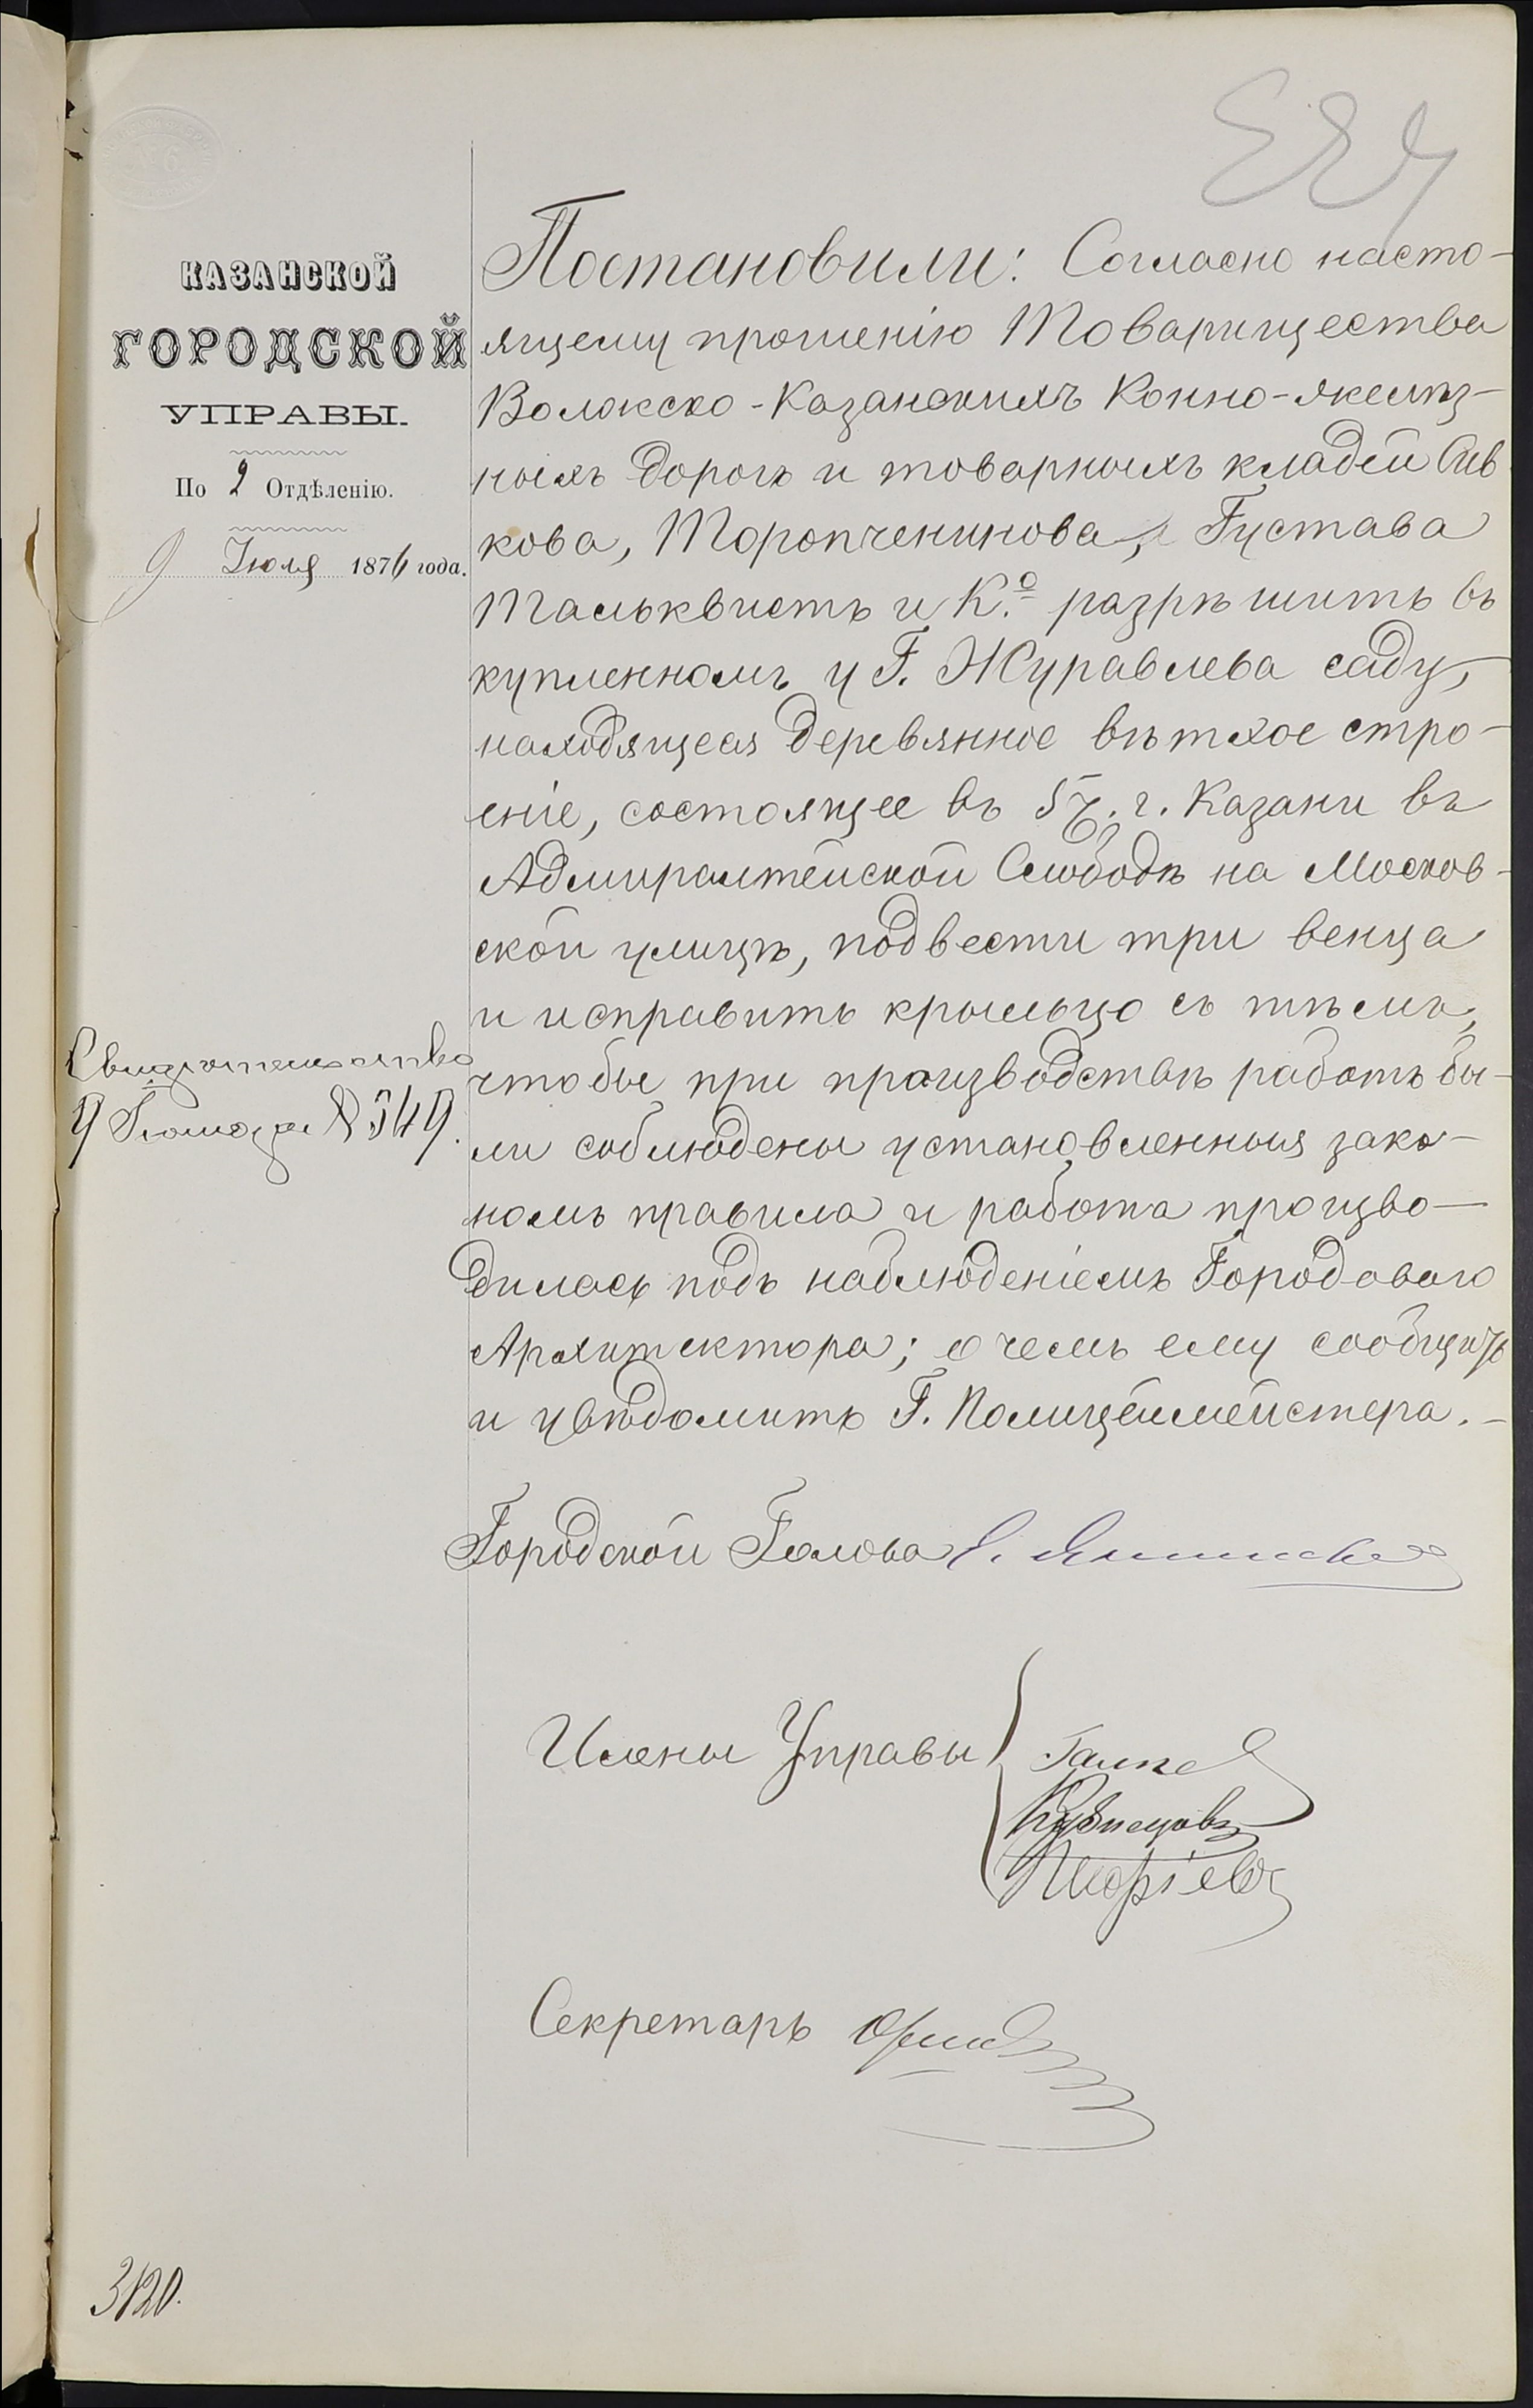 КАЗАНСКОЙ
ГОРОДСКОЙ
УПРАВЫ.
По 2 Отдѣленію.
9 Іюля 1876 года.
Постановили: Согласно насто-
ящему прошенію Товарищества
Волжско-Казанскихъ Конно-желѣз-
ныхъ дорогъ и товарныхъ кладей Сив
кова, Торопченинова, Густава
Тальквистъ и К.о разрѣшить въ
купленномъ у Г. Журавлева саду,
находящееся деревянное вѣтхое стро-
еніе, состоящее въ 5 ч. г. Казани въ
Адмиралтейской Слободѣ на Москов-
ской улицѣ, подвести три венца
и исправить крыльцо съ тѣмъ,
чтобы при производствѣ работъ бы-
ли соблюдены установленныя зако-
номъ правила и работа произво-
дилась подъ наблюденіемъ Городоваго
Архитектора; о чемъ ему сообщить
и увѣдомить Г. Полицеймейстера.-
Свидѣтельство
9 Іюля за № 549.
Городской Голова
Члены Управы
Кузнецовъ
Секретарь
3120.